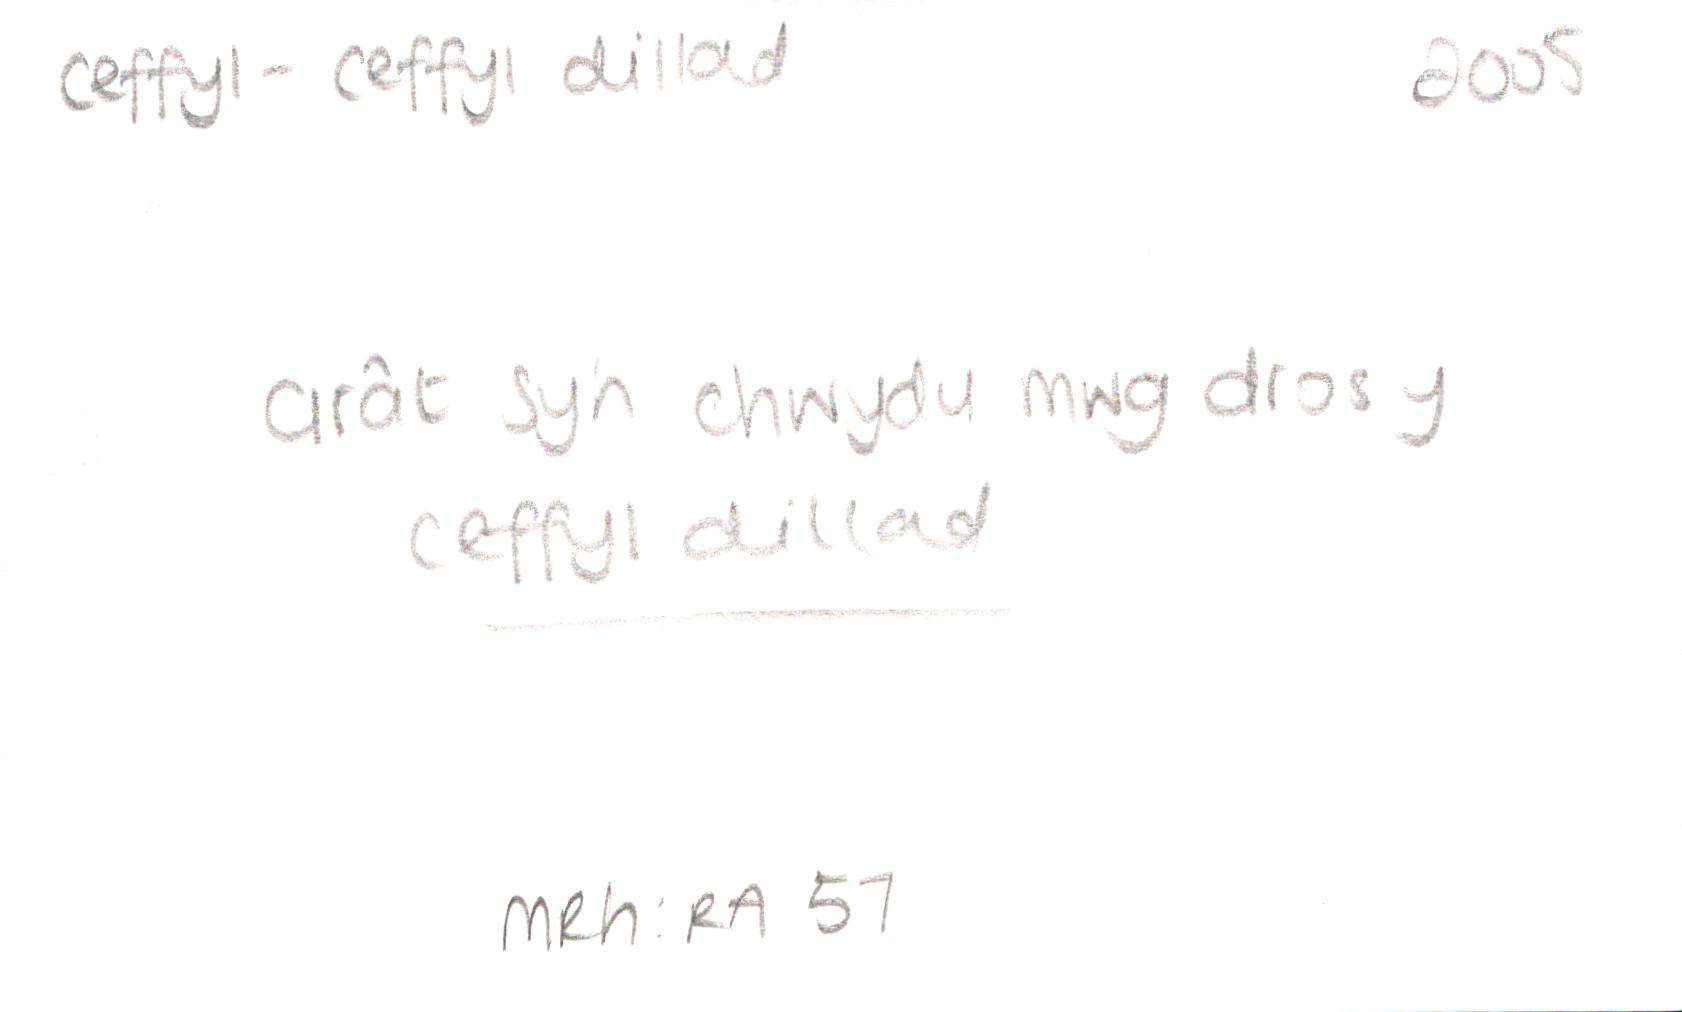 ceffyl - ceffyl dillad 2005
arât sy'n chwydu mwg dros y
ceffyl dillad
MRh: RA 57